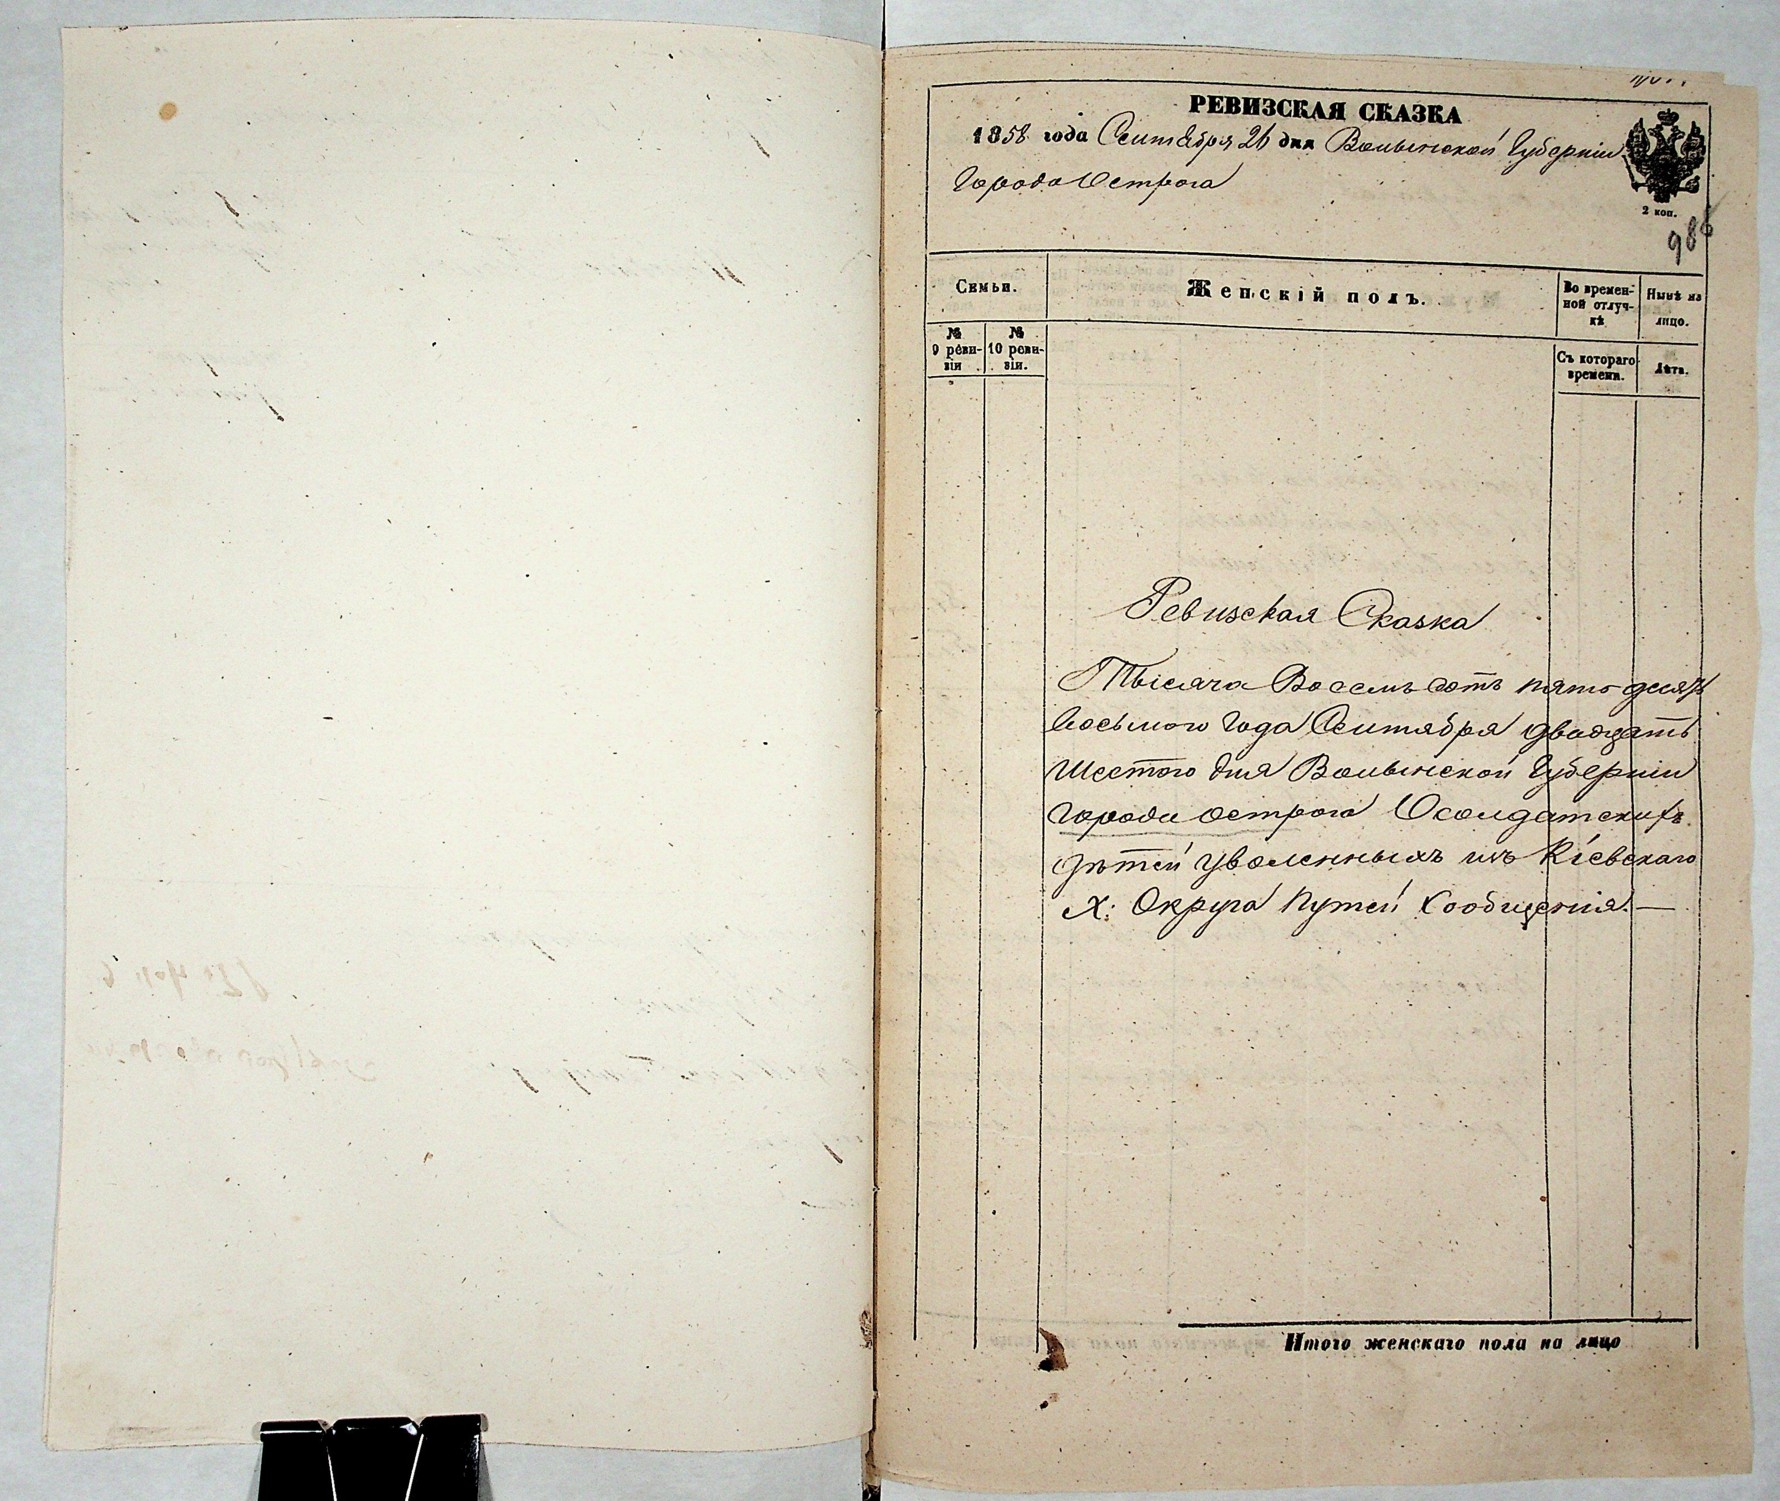 РЕВИЗСКАЯ СКАЗКА
1858 года Сентября 26 дня Волынской Губерніи
Города Острога
2 коп.
986
Семьи.
Женскій полъ.
Во времен-
ной отлуч-
кѣ
Нынѣ на
лицо.
№
9 реви-
зіи
№
10 реви-
зіи.
Съ котораго
времени.
Лѣта.
Ревизская Сказка
Тысяча Восемь сотъ пятьдесятъ
восьмого Года Сентября двадцать
Шестого дня Волынской Губерніи
Города Острога О солдатскихъ
дѣтей уволенныхъ изъ Кіевскаго
X: Округа Путей Сообщенія. —
Итого женскаго пола на лицо